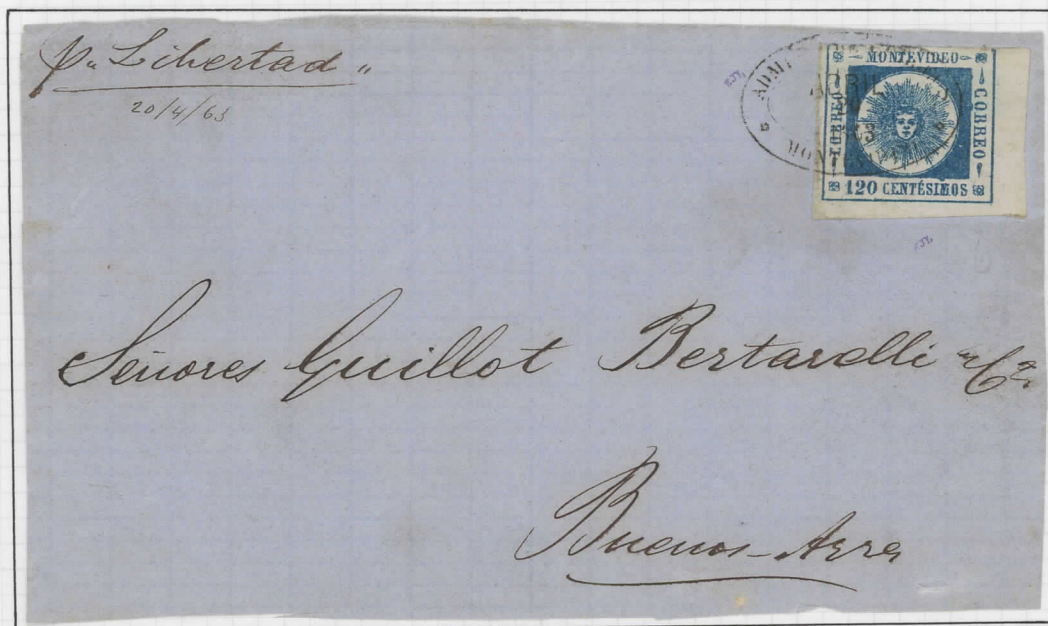 p.. Libertad "
20/4/63
MONTEVIDEO
CORREO
CORREO
120 CENTÉSIMOS
ABRIL
Señores Guillot Bertarelli y Ca.
Buenos-Ayres